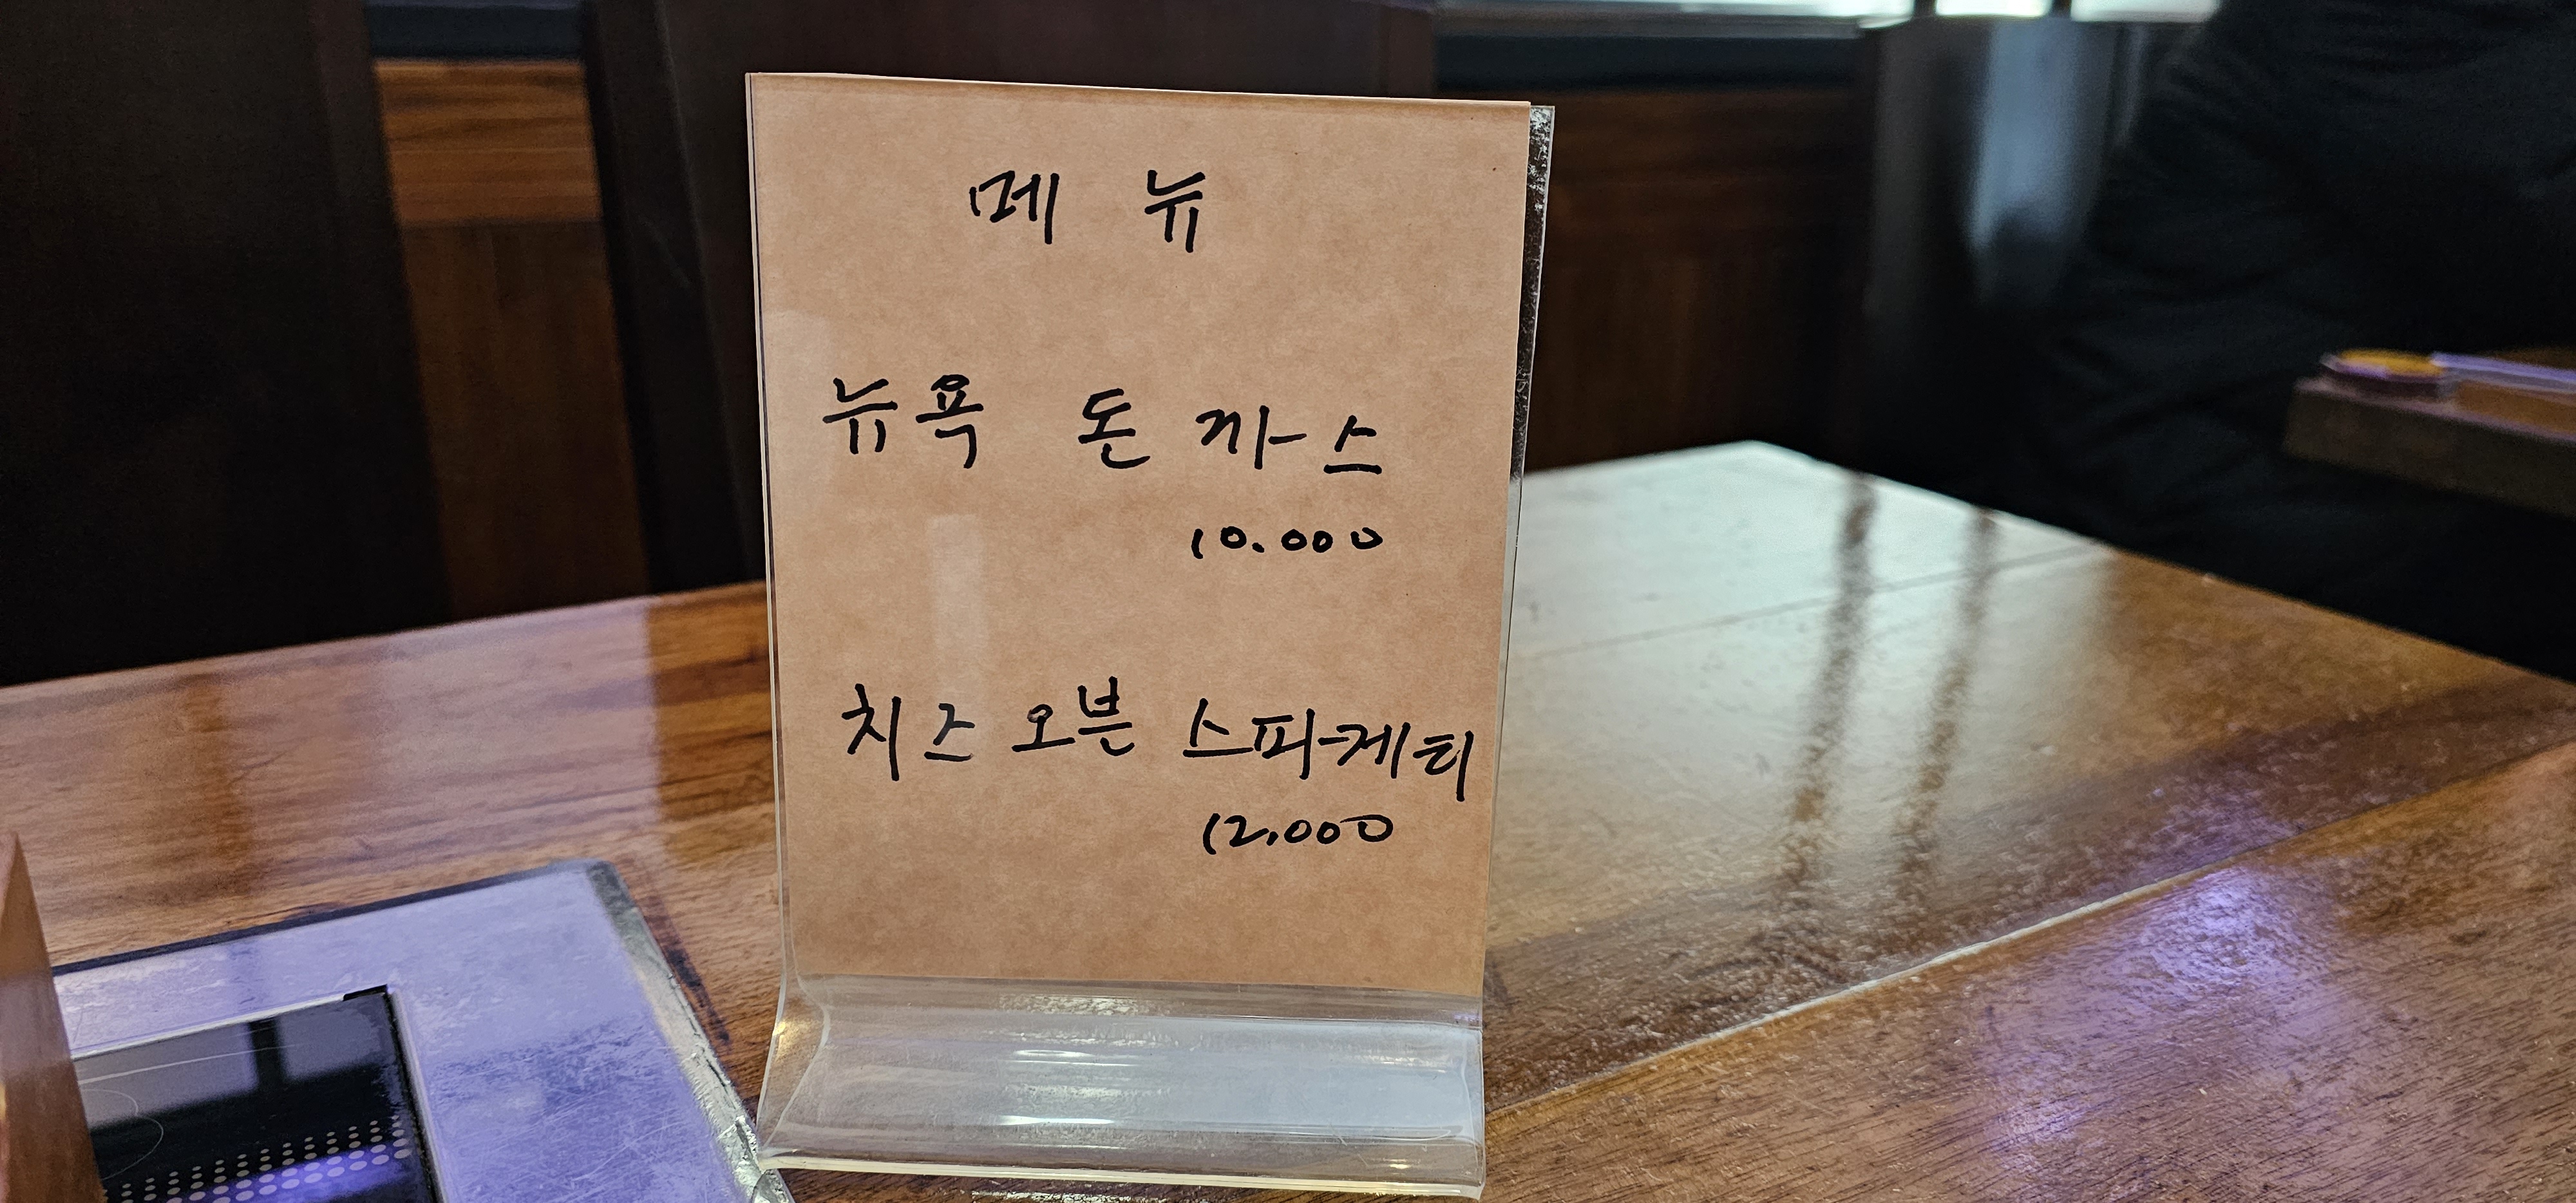 메 뉴
뉴욕 돈 까스
10.000
치즈 오븐 스파게티
12,000